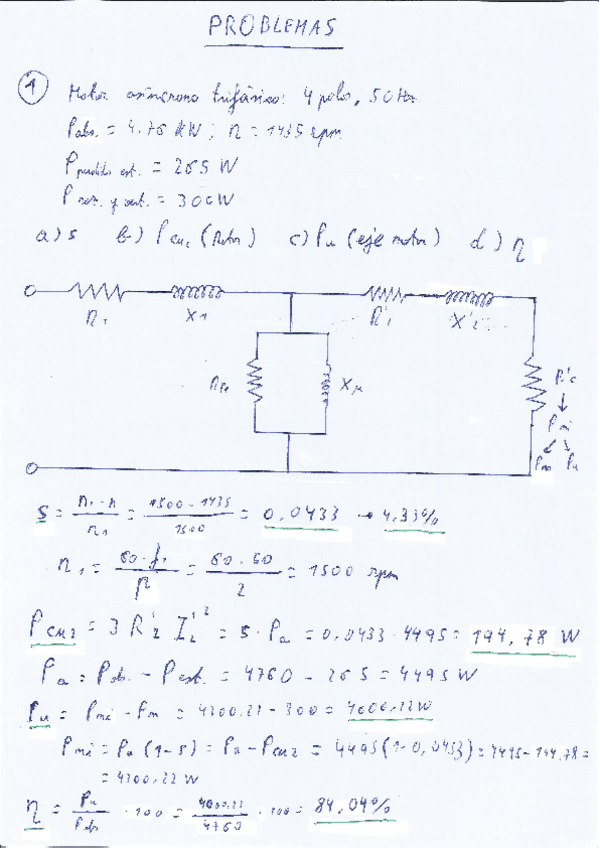 PROBLEMAS
1 Motor asíncrono trifásico: 4 polos, 50 Hz
Pabs. = 4.76 kW ; n = 1435 rpm
Pperdida est. = 265 W
Proz. y vent. = 300W
a) s b) PCu2 (Rotor) c) Pu (eje motor) d) η
R1 X1 R'2 X'2
RFe Xμ R'c
Pmi
Pm Pu
s = n1 - n / n1 = 1500 - 1435 / 1500 = 0,0433 → 4.33%
n1 = 60 · f1 / p = 60 · 50 / 2 = 1500 rpm
PCu2 = 3 R'2 I'2² = s · Pa = 0,0433 · 4495 = 194,78 W
Pa = Pab. - Pest. = 4760 - 265 = 4495 W
Pu = Pmi - Pm = 4300.22 - 300 = 4000.22 W
Pmi = Pa (1-s) = Pa - PCu2 = 4495 (1-0,0433) = 4495 - 194.78 =
= 4300.22 W
η = Pu / Pabs · 100 = 4000.22 / 4760 · 100 = 84,04%